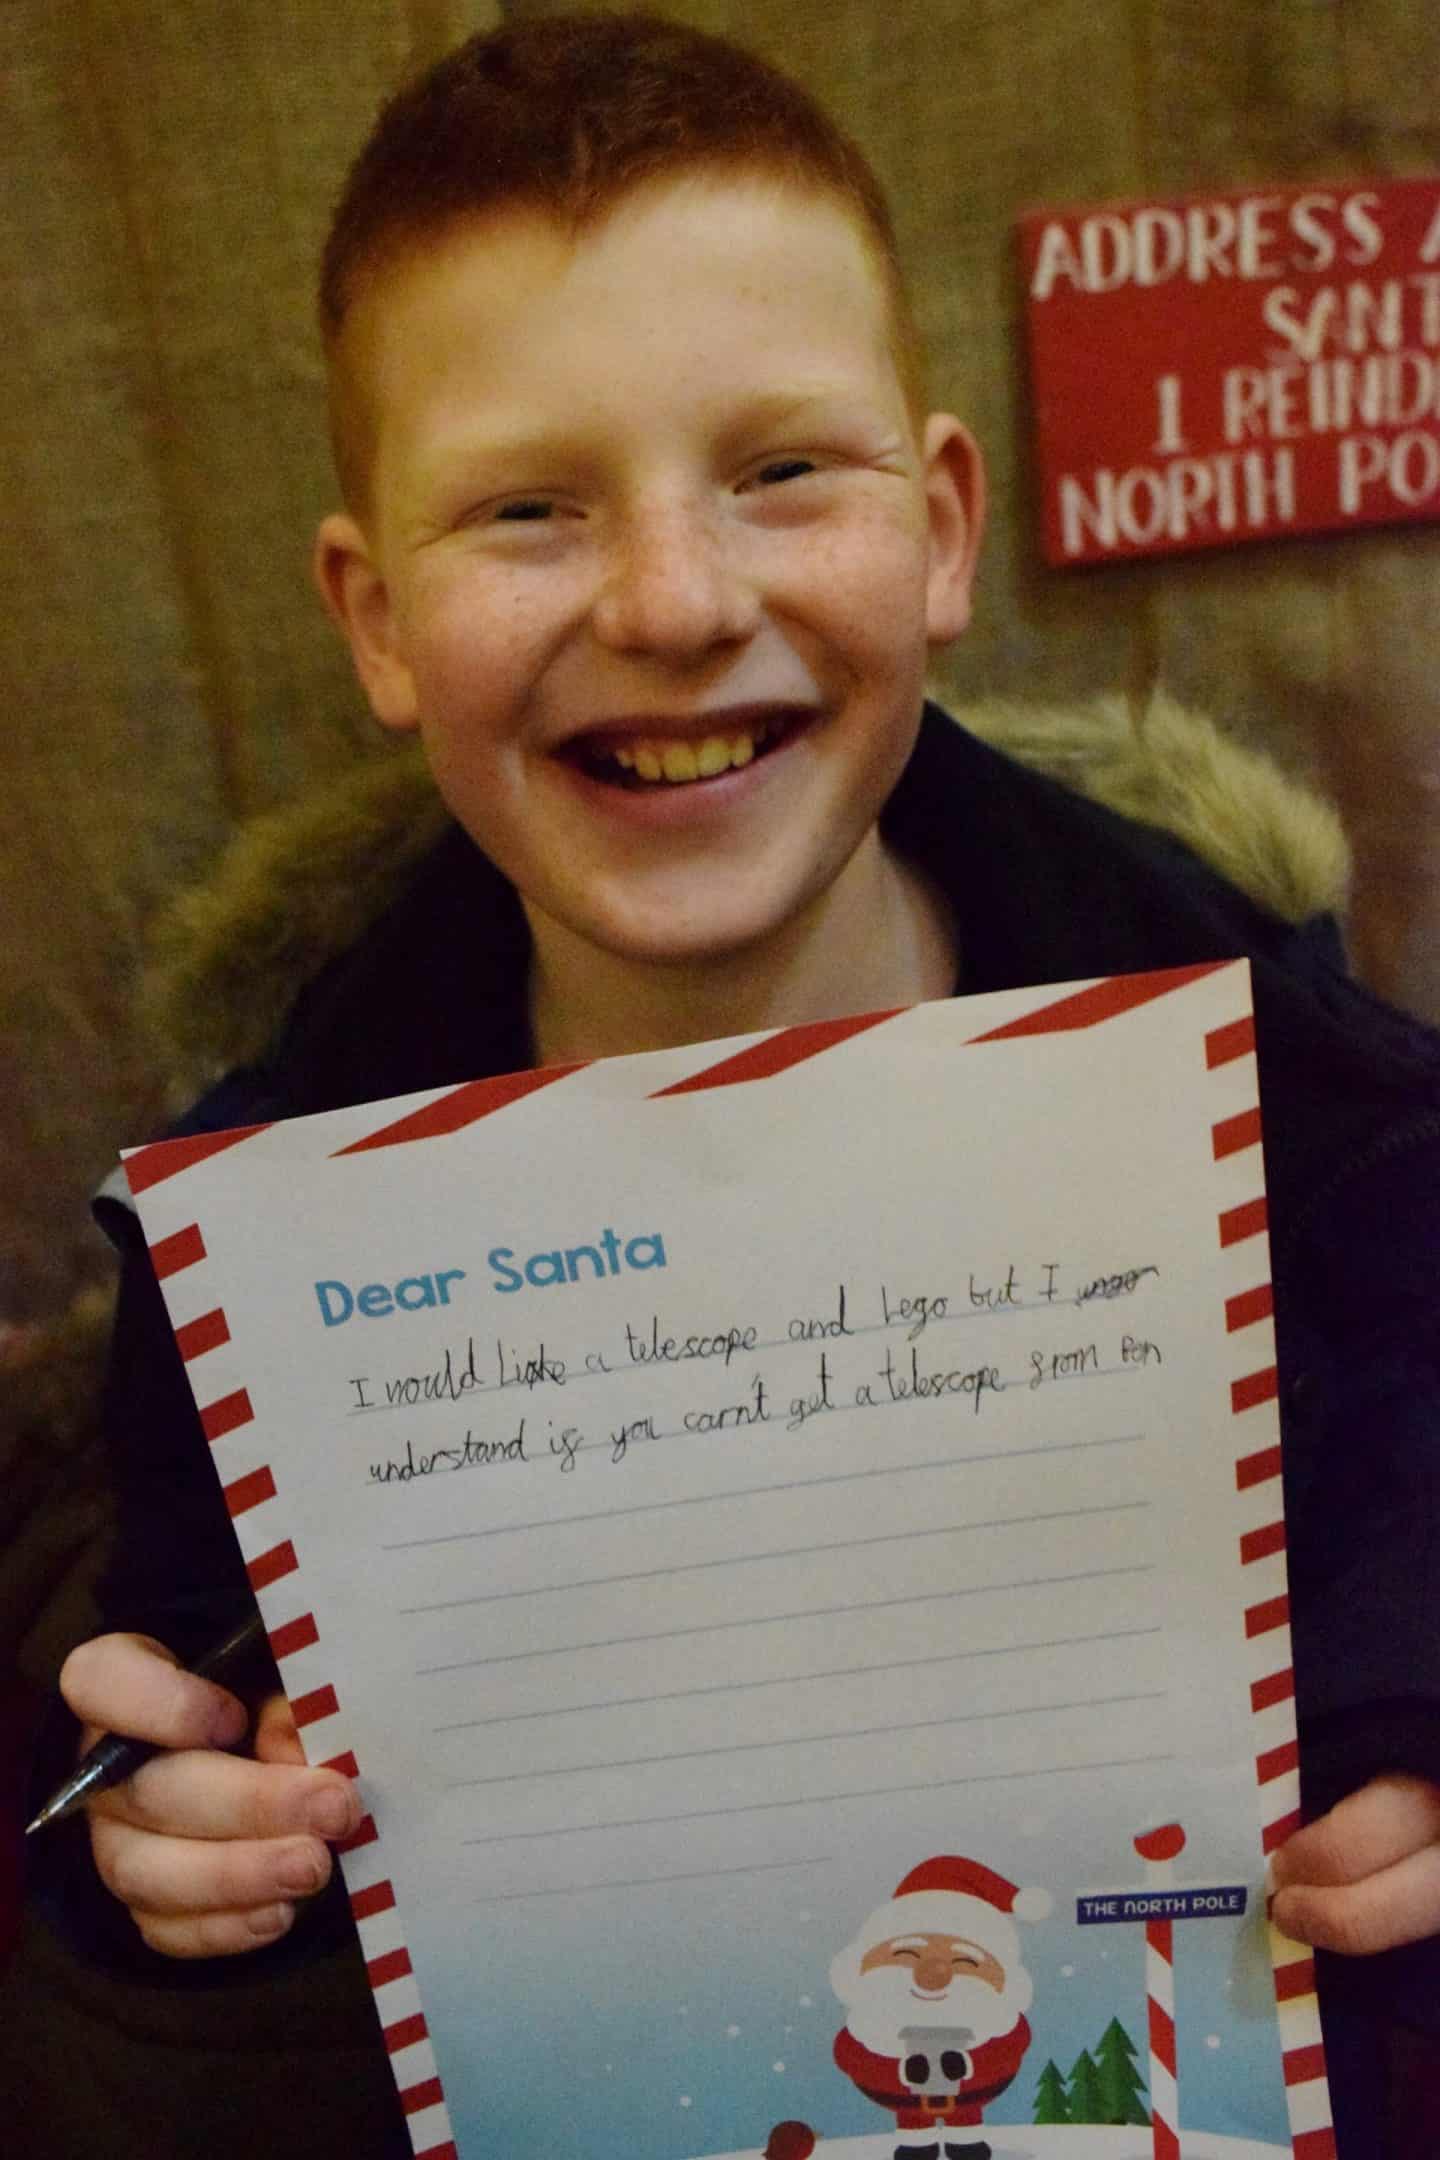 ADDRESS
SANT
1 REIND
NORTH PO
Dear Santa
I would Like a telescope and Lego but I
understand if you carn't get a telescope from Ben
THE NORTH POLE